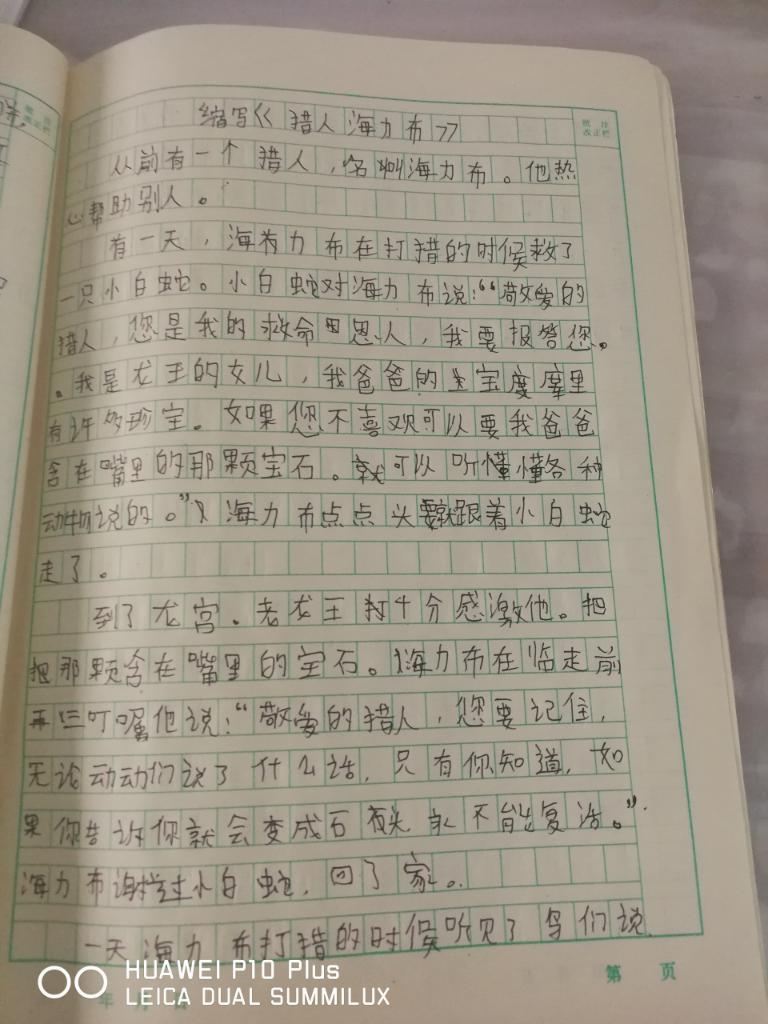 缩写《猎人海力布》
批注
改正栏
从前有一个猎人,名叫海力布。他热
心帮助别人。
有一天,海有力布在打猎的时候救了
一只小白蛇。小白蛇对海力布说:“敬爱的
猎人,您是我的救命恩人,我要报答您。
。我是龙王的女儿,我爸爸的宝度摩里
有许多珍宝。如果您不喜欢可以要我爸爸
含在嘴里的那颗宝石。就可以听懂懂各种
动物说的。”海力布点点头就跟着小白蛇
走了。
到了龙宫.老龙王打十分感激他。把
把那颗含在嘴里的宝石。海力布在临走前
再三叮嘱他说:“敬爱的猎人,您要记住,
无论动动们说了什么话,只有你知道,如
果你告诉你就会变成石头永不能复活。”
海力布谢过小白蛇,回了家。
一天海力布打猎的时候听见了鸟们说
第 页
年
HUAWEI P10 Plus
LEICA DUAL SUMMILUX